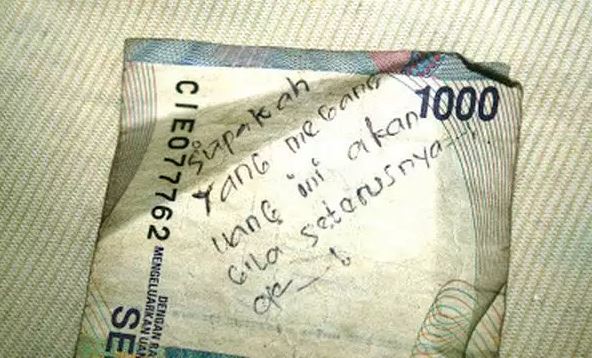 1000
CIE077762
siapakah
yang megang
uang ini akan
gila seterusnya
DENGAN RA
MENGELUARKAN UAN
SE